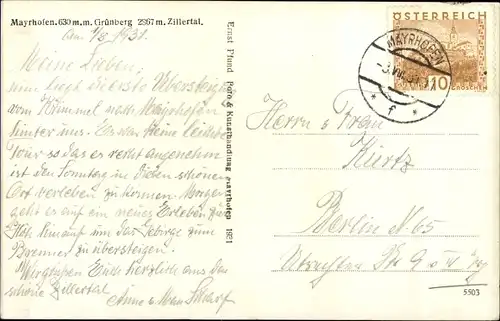 Mayrhofen. 630 m. m. Grünberg 2867 m. Zillertal.
am 1/8 1931.
Meine Lieben,
nun liegt die erste Übersteigung
vom Krimmel nach Mayrhofen
hinter uns. Es war keine leichte
Tour so das es recht angenehm
ist den Sonntag in diesen schönen
Ort verleben zu können. Morgen
geht es auf ein neues Erleben zur
um das Gebirge zum
Brenner zu übersteigen.
Wir grüssen Euch herzlich aus das
schöne Zillertal
Anna u. Max
Ernst Pfund Foto & Kunsthandlung Mayrhofen 1931
ÖSTERREICH
10
GROSCHEN
MAYRHOFEN
* f *
Herrn u Frau
Kiertz
Berlin N. 65
Utrechter Str 9
5503